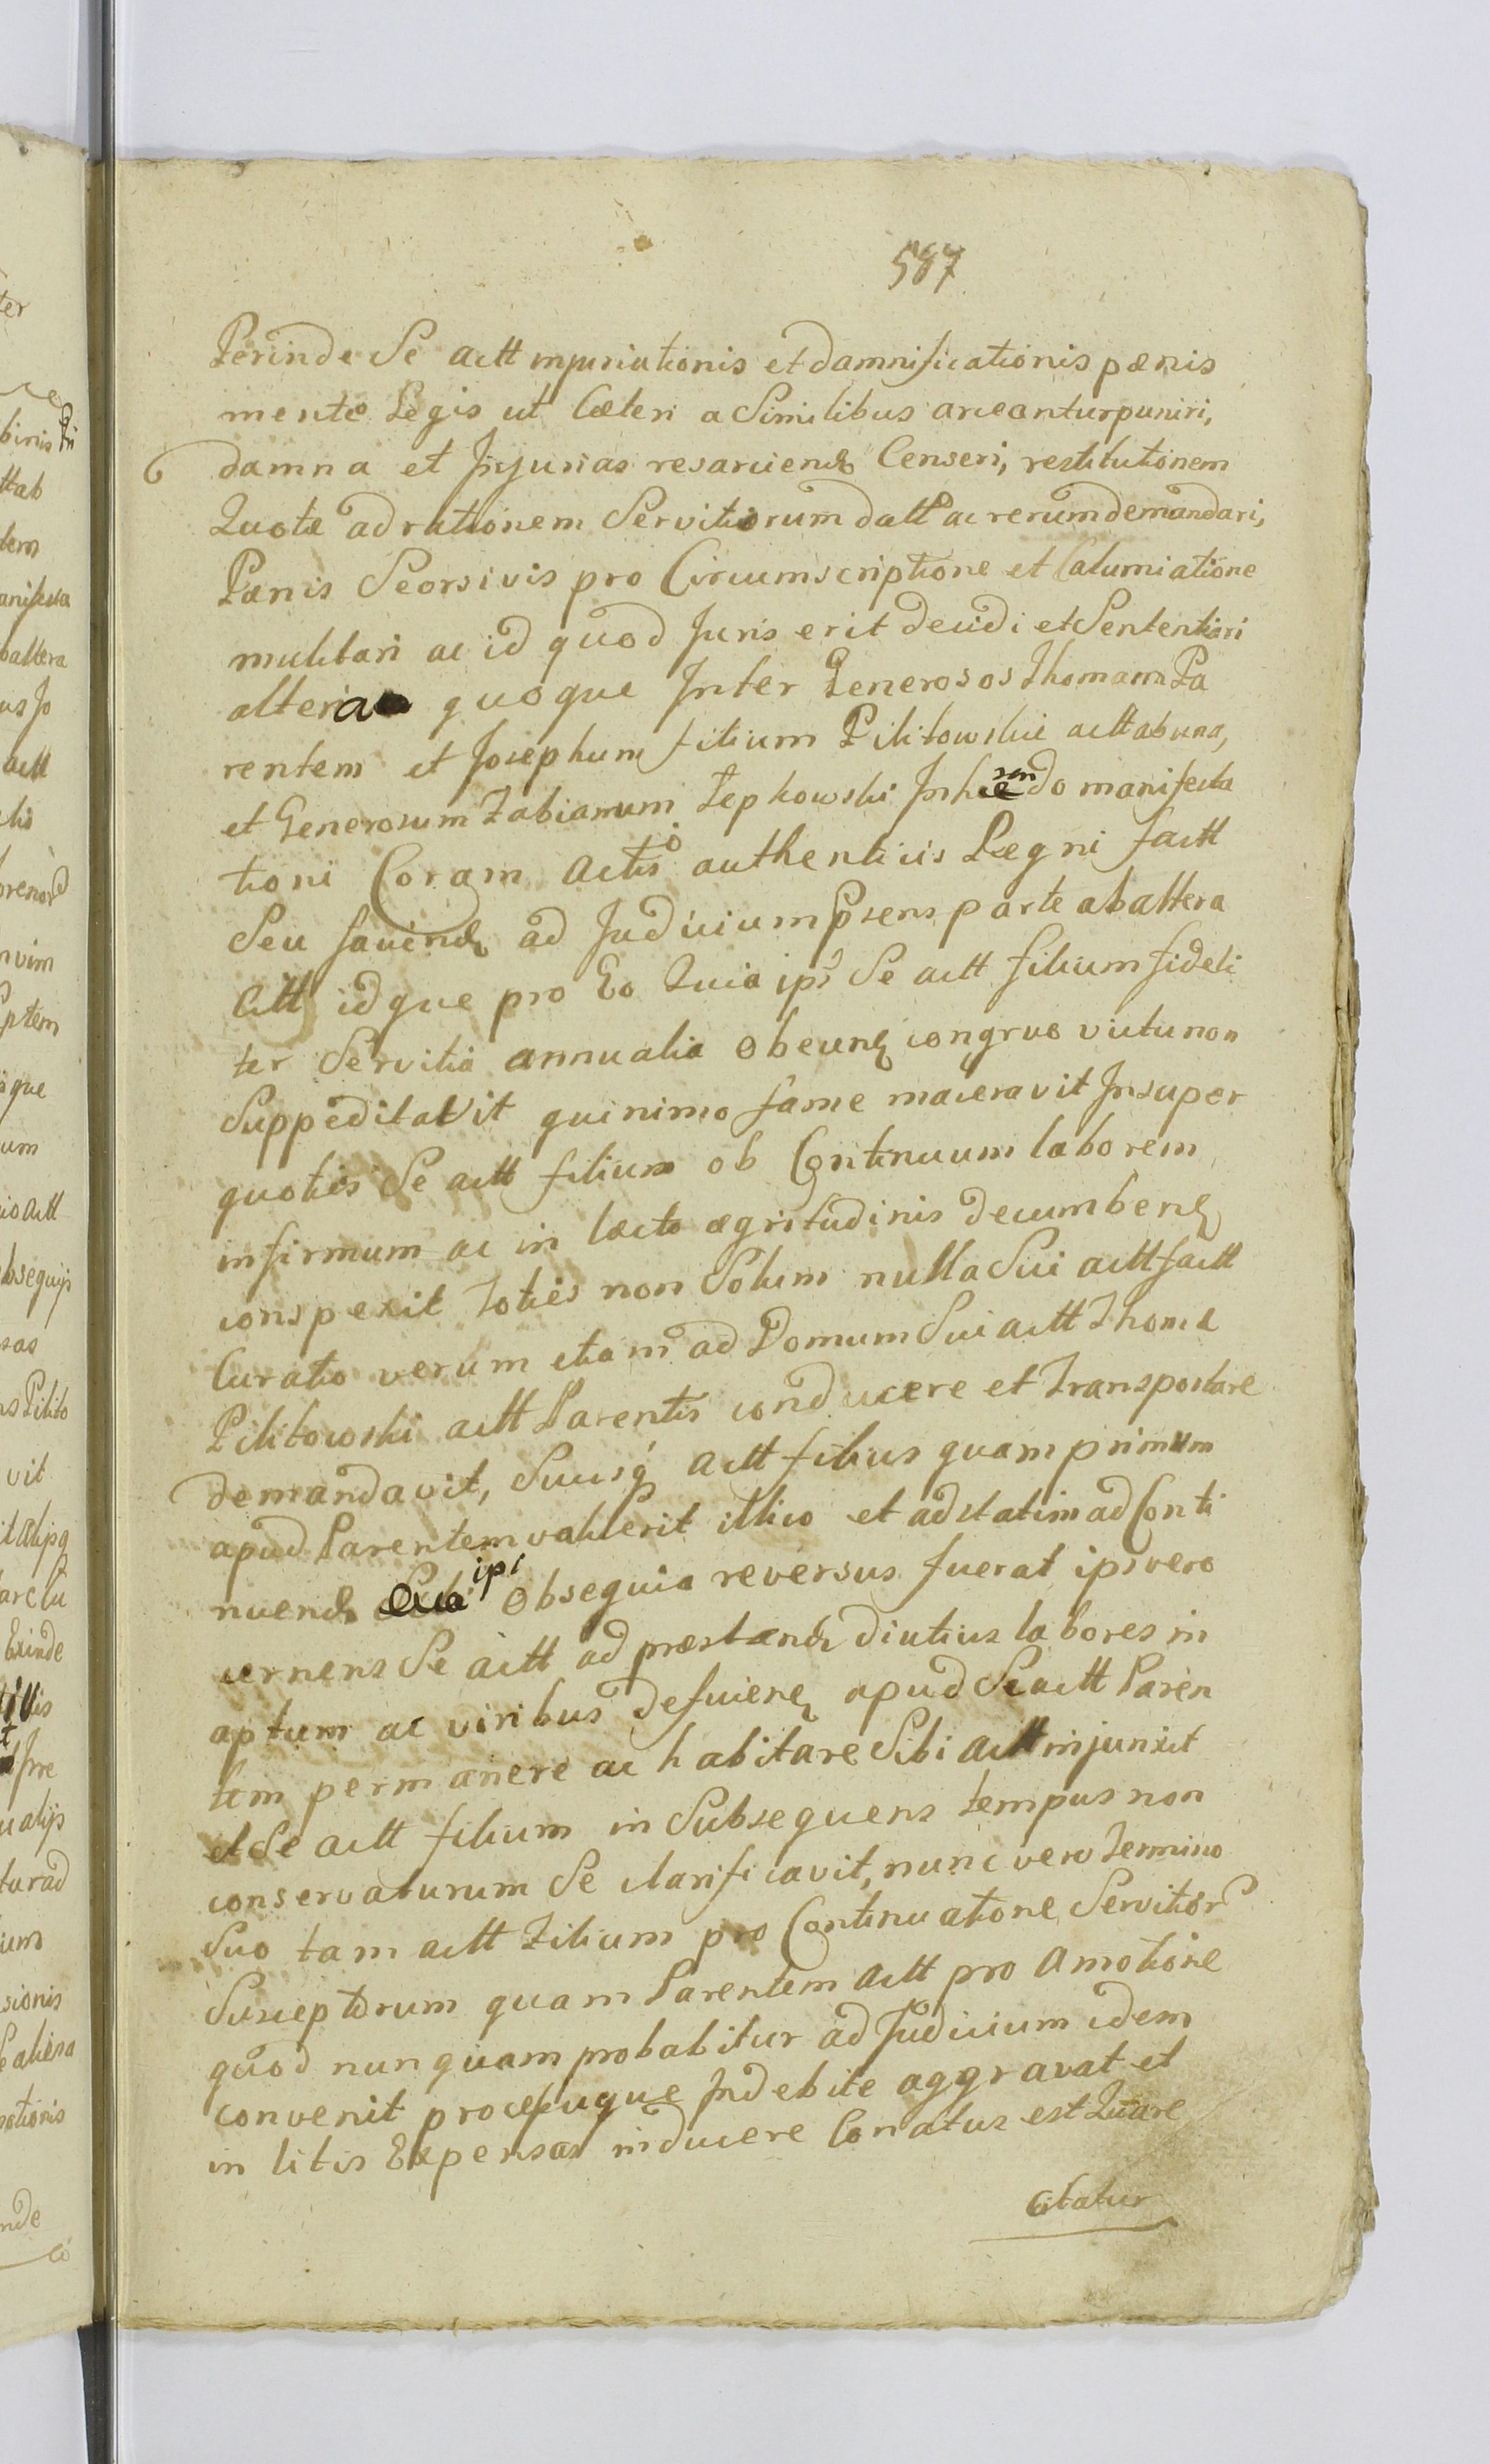 587
Perinde Se actt injuriationis et damnificationis pœnis
mente Legis ut Cæteri a Similibus arceantur puniri,
damna et Injurias resarciend Censeri, restitutionem
Quotæ ad rationem Servitiorum datt ac rerum demandari,
Pœnis Seorsivis pro Circumscriptione et Calumiatione
mulctari ac id quod Juris erit decidi et Sententiari
altera quoque Inter Generosos Thomam Pa
rentem et Josephum filium Pilitowskie actt ab una,
et Generosum Fabianum Łepkowski Inhærendo manifesta
tioni Coram Actis authenticis Regni factt
Seu faciend ad Judicium Psens parte ab altera
Citt idque pro Eo Quia ips Se actt filium fideli
ter Servitia annualia Obeunt congruo victu non
Suppeditavit quinimo fame maceravit Insuper
quoties Se actt filium ob Continuum laborem
infirmum ac in lecto ægritudinis decumbent
conspexit toties non Solum nulla Sui actt factt
Curatio verum etiam ad Domum Sui actt Thomæ
Pilitowski actt Parentis conducere et Transportare
demandavit, Suusq actt filius quamprimum
apud Parentem valuerit illico et adstatim ad Conti
nuend ipi Obsequia reversus fuerat ips vero
cernens Se actt ad præstand diutius labores in
aptum ac viribus deficient apud Se actt Paren
tem permanere ac habitare Sibi actt injunxit
et Se actt filium in Subsequens tempus non
conservaturum Se clarificavit, nunc vero Termino
Suo tam actt Filium pro Continuatione Servitior
Susceptorum quam Parentem actt pro Amotione
quod nunquam probabitur ad Judicium idem
convenit processuque Indebite aggravat et
in litis Expensas inducere Conatus est Quare
Citatur